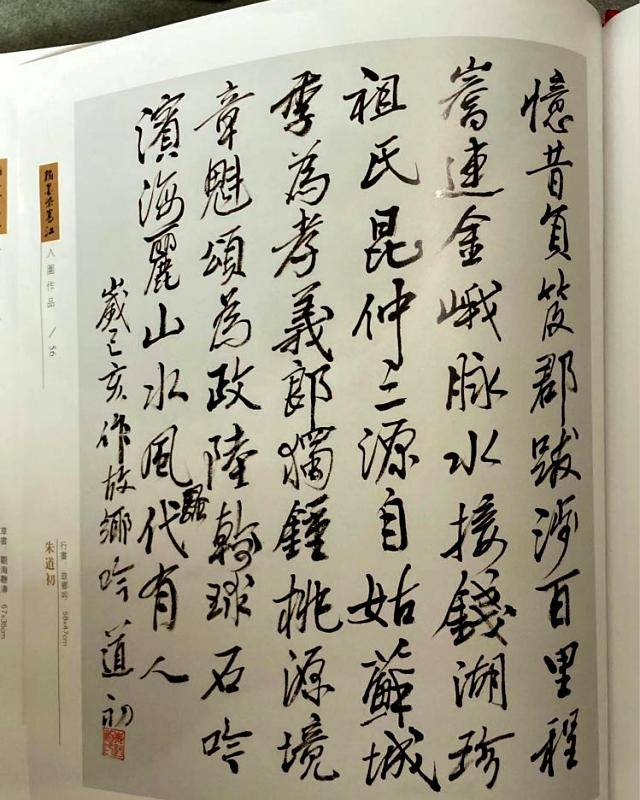 憶昔負笈郡跋涉百里程
嵩連金峨脉水接錢湖珍
祖氏昆仲二源自姑蘇城
季為孝義郎獨鍾桃源境
章魁頌為政陸翰球石吟
濱海麗山水風騷代有人
歲己亥作故鄉吟 道初
行書 故鄉吟 58x47cm
朱道初
入圍作品 / 56
草書 觀海聽濤 67x35cm